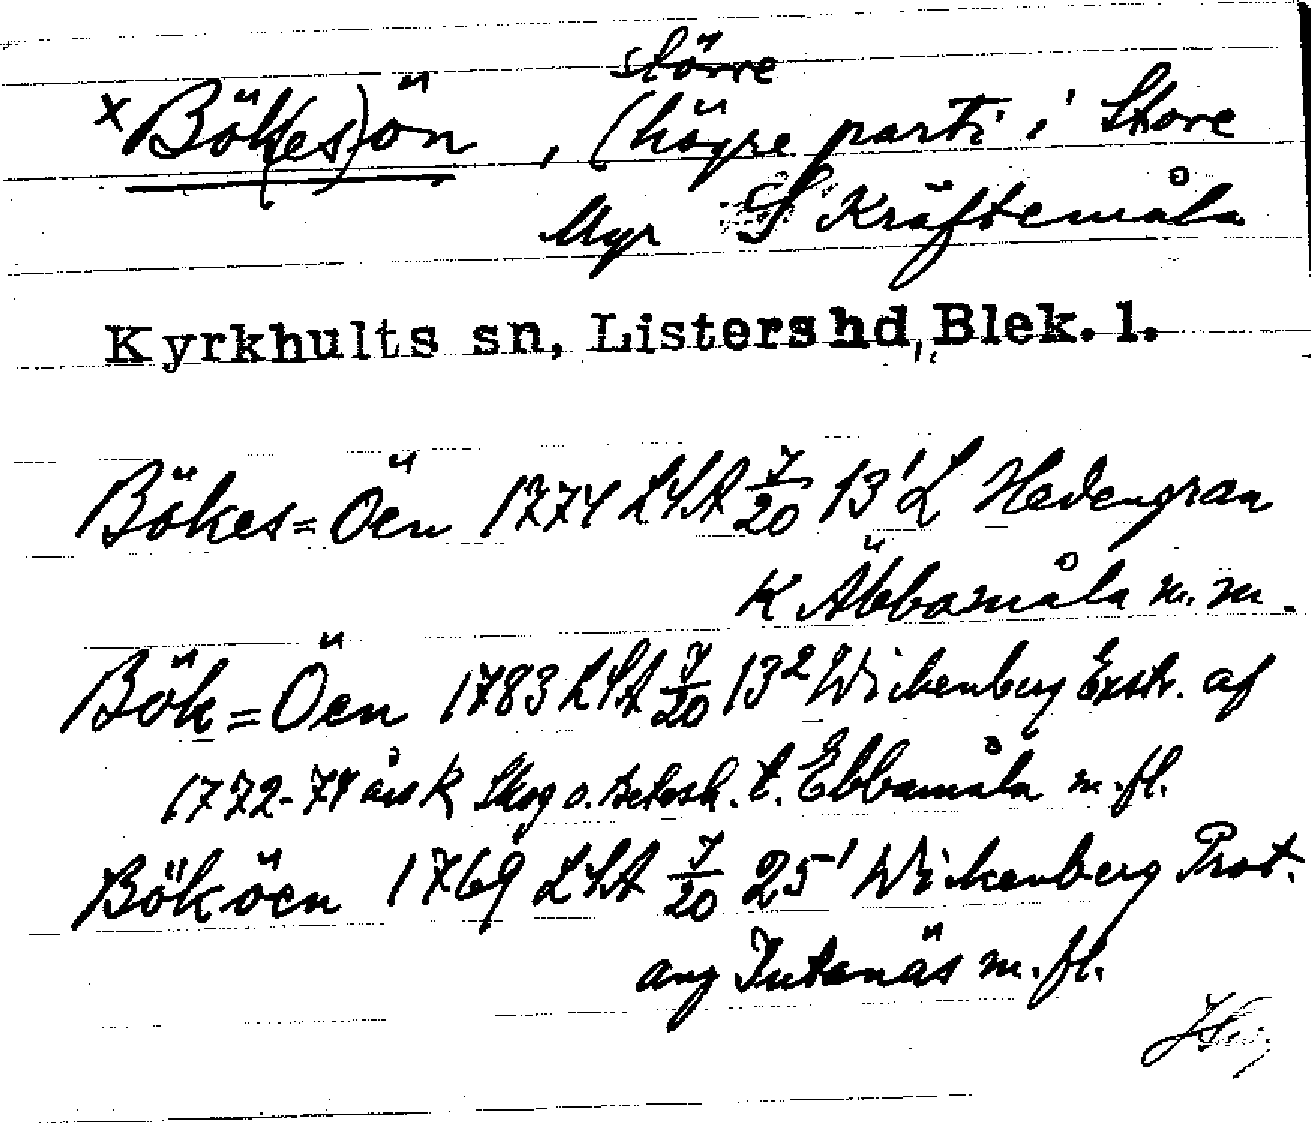 större
x Bök(es)ön , (högre parti i Store
Myr S Kräftemåla
Kyrkhults sn, Listers hd, Blek. l.
Bökes=Öen 1774 LSA 7/20 13¹ L Hedengran
K Äbbamåla m. m.
Bök=Öen 1783 LSA 7/20 13² Wickenberg Extr. af
1772-74 års K Skog o. t. Ebbamåla m. fl.
Bököen 1769 LSA 7/20 25¹ Wickenberg Prot.
ang Jutanäs m. fl.